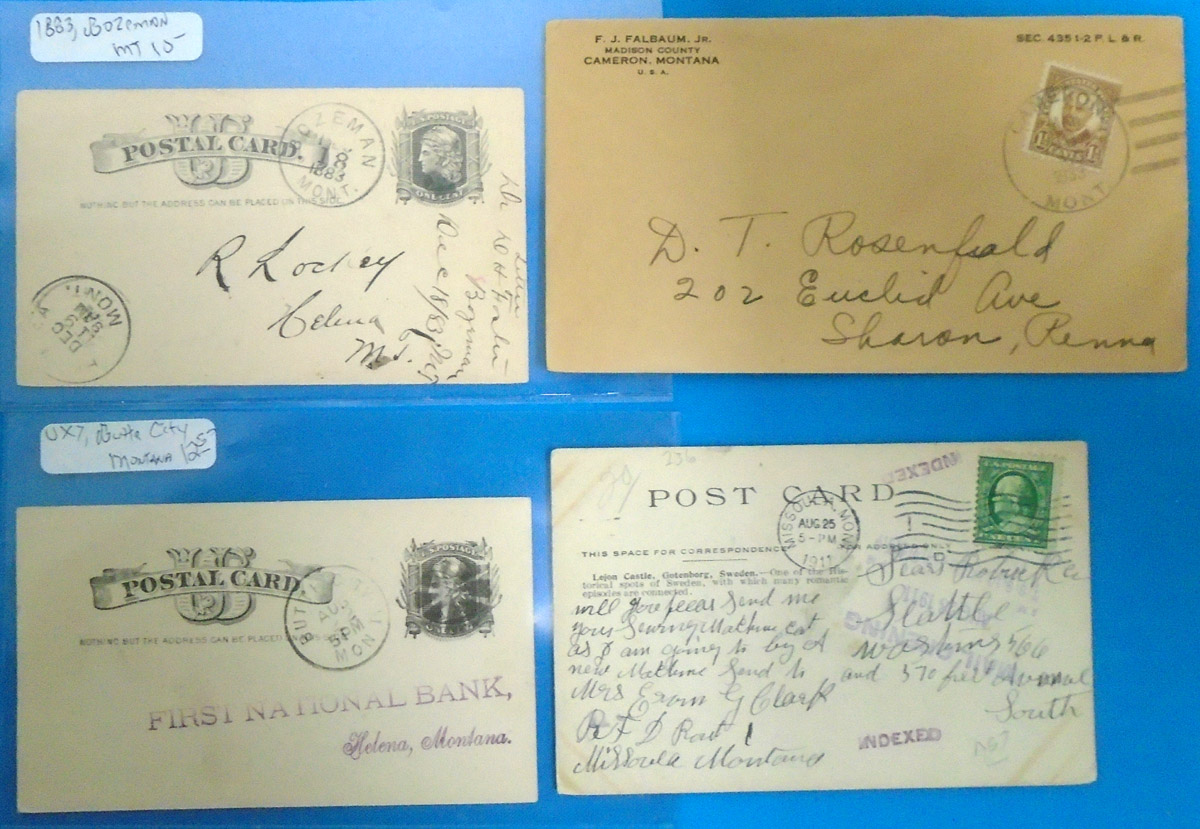 1883, Bozeman
MT 10-
POSTAL CARD.
NOTHING BUT THE ADDRESS CAN BE PLACED ON THIS SIDE
BOZEMAN
18
1883
MONT.
ONE CENT
R Lockey
Helena
M.T.
Letter
Bozeman
Dec 18/83
DEC
19
MONT.
F. J. FALBAUM, JR.
MADISON COUNTY
CAMERON, MONTANA
U. S. A.
SEC. 435 1-2 P. L. & R.
CENTS
MONT
D. T. Rosenfield
202 Euclid Ave
Sharon, Penna
UX7, Butte City
Montana 12.50
POSTAL CARD.
NOTHING BUT THE ADDRESS CAN BE PLACED ON THIS SIDE
U.S. POSTAGE
5 PM
MONT.
FIRST NATIONAL BANK,
Helena, Montana.
236
INDEXED
POST CARD
MISSOULA, MONT.
AUG 25
5-PM
1911
U.S. POSTAGE
THIS SPACE FOR CORRESPONDENCE
FOR ADDRESS ONLY
Lejon Castle, Gotenborg, Sweden.—One of the his-
torical spots of Sweden, with which many romantic
episodes are connected.
will you pleas Send me
your Sewing Mathine cat
as I am going to by A
new Mathine Send to
Mrs G Clark
R F D Rout 1
Missoula Montana
Sears Robuk Co
Seattle
and
South
INDEXED